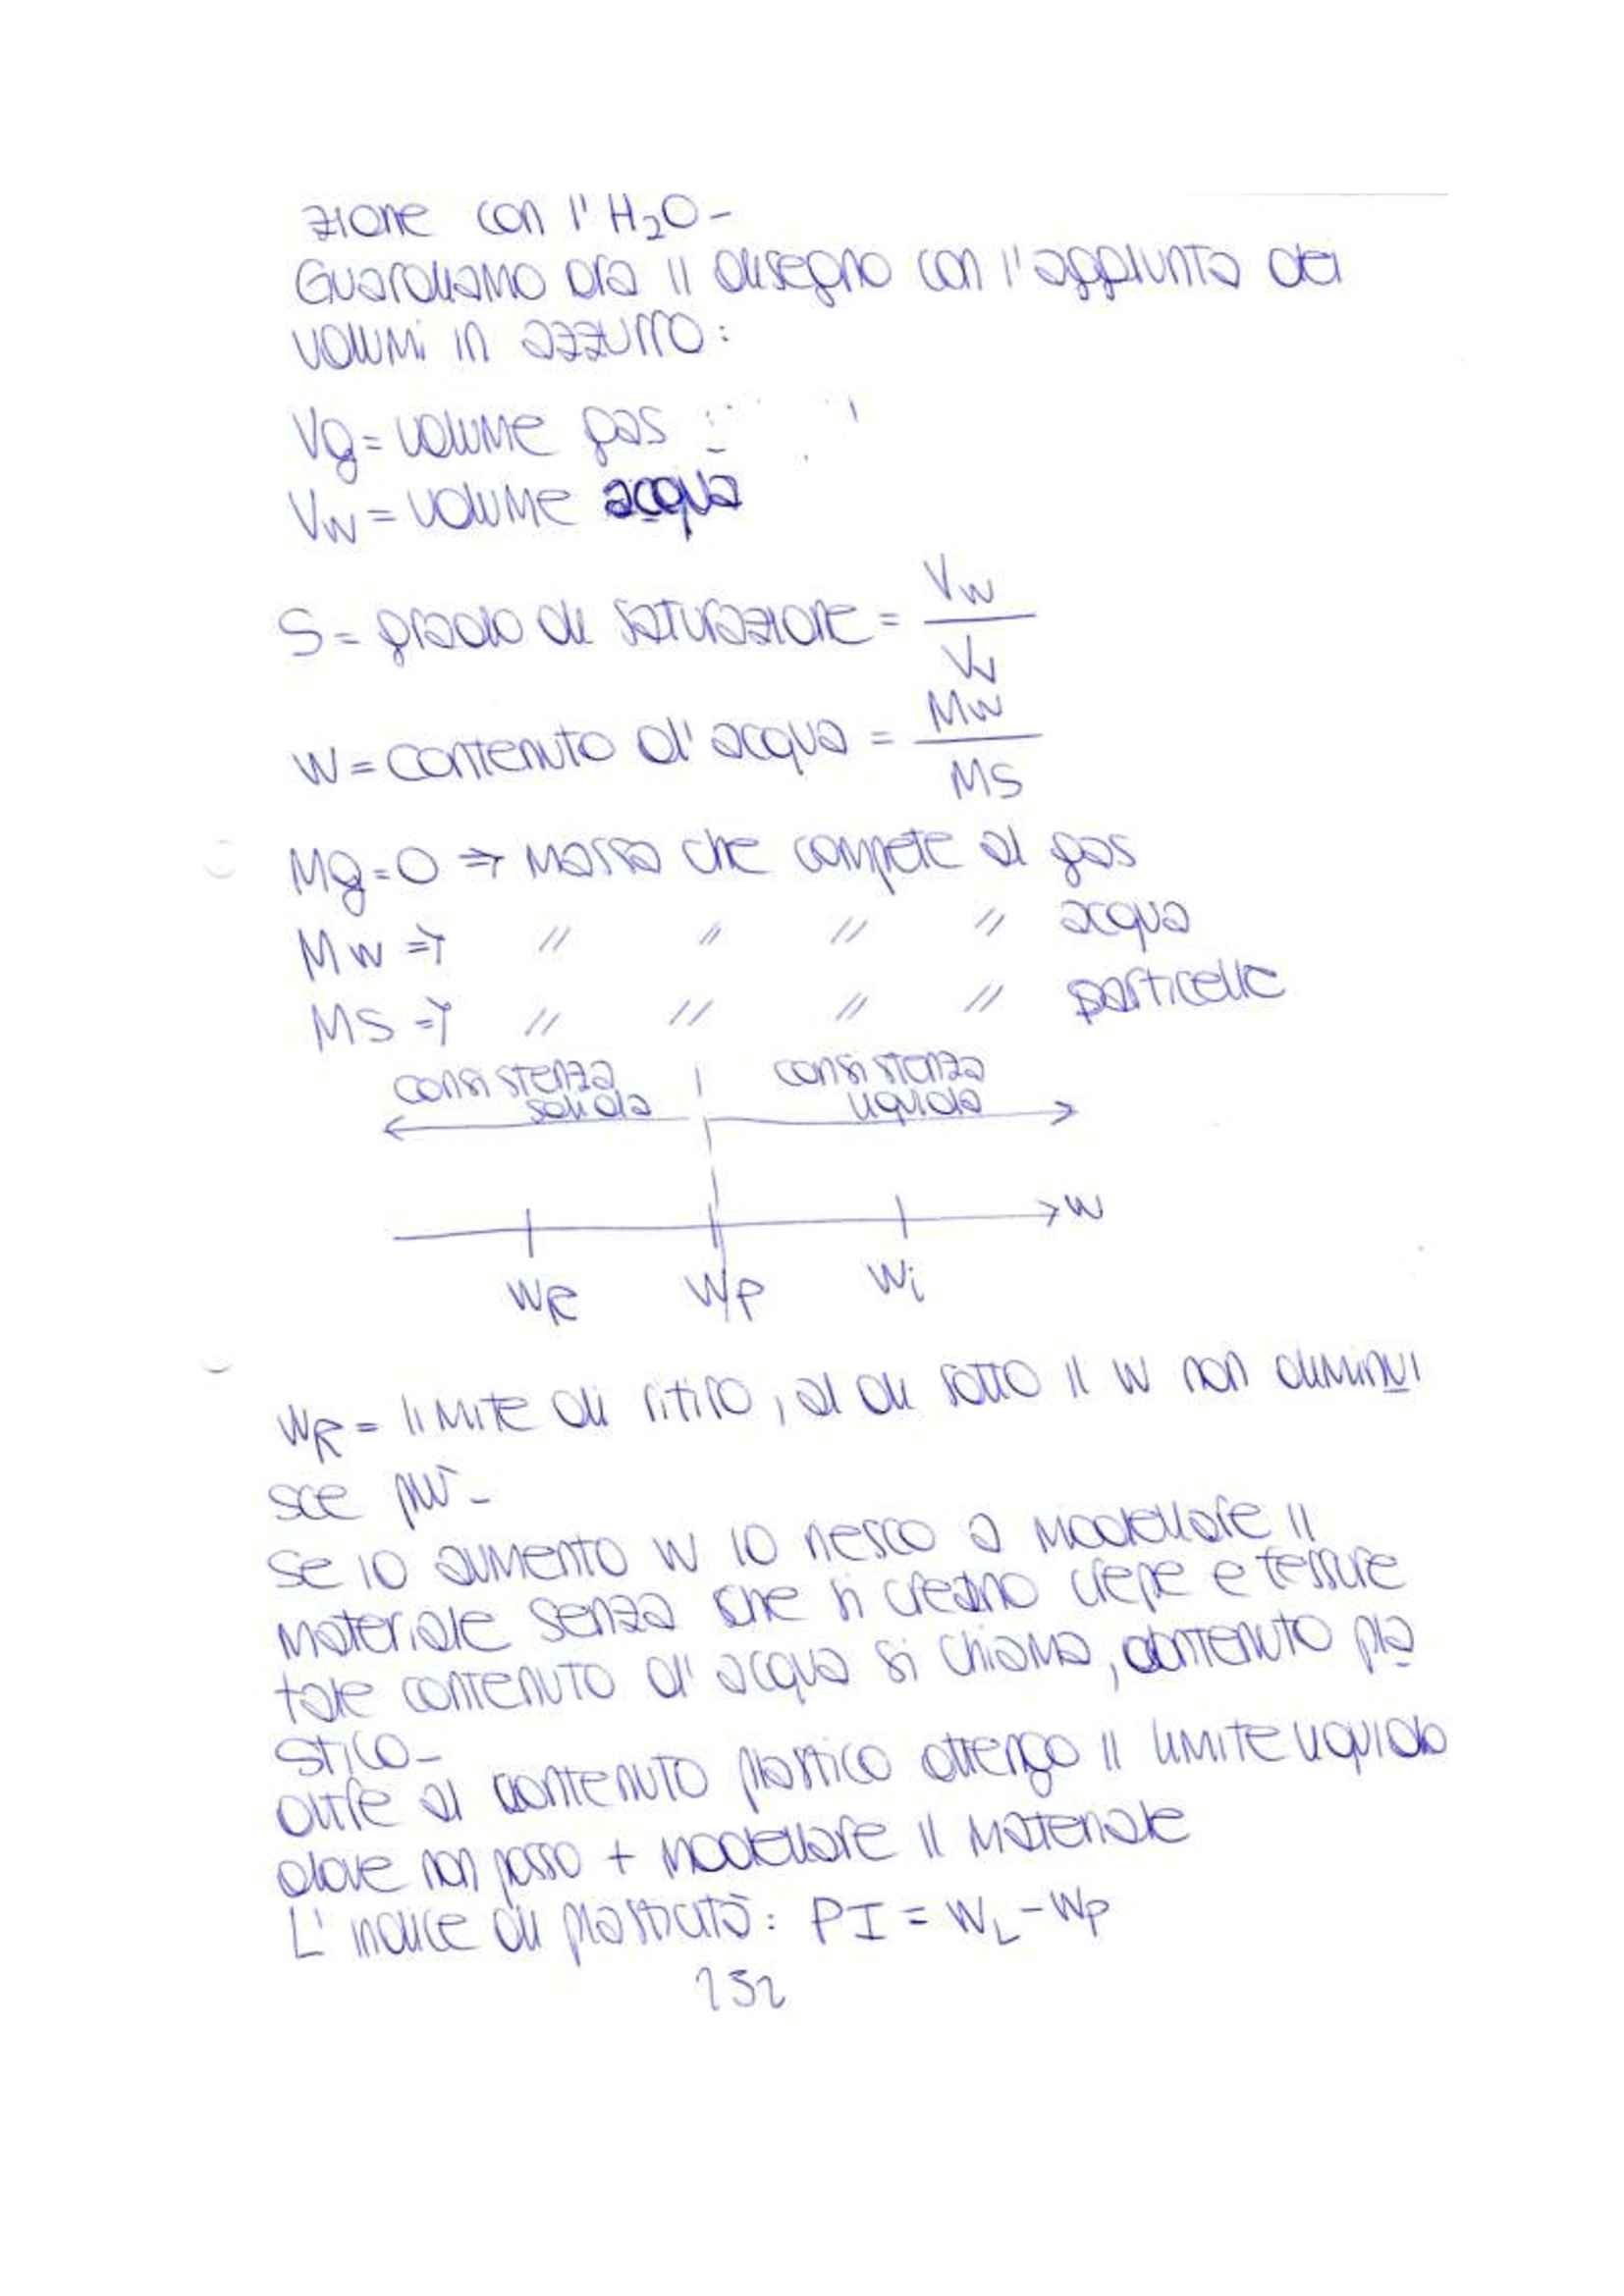 zione con l'H2O-
Guardiamo ora il disegno con l'aggiunta dei
volumi in azzurro:
Vg = volume gas
Vw = volume acqua
S = grado di saturazione = Vw / Vv
W = contenuto d'acqua = Mw / MS
Mg = 0 => massa che compete al gas
Mw => // // // // acqua
MS => // // // // particelle
consistenza consistenza
solida liquida
w
WR WP Wi
WR = limite di ritiro, al di sotto il W non diminui
sce più-
Se io aumento W io riesco a modellare il
materiale senza che si creano crepe e fessure
tale contenuto d'acqua si chiama, contenuto pla
stico-
oltre al contenuto plastico ottengo il limite liquido
dove non posso + modellare il materiale
L'indice di plasticità: PI = WL - WP
232